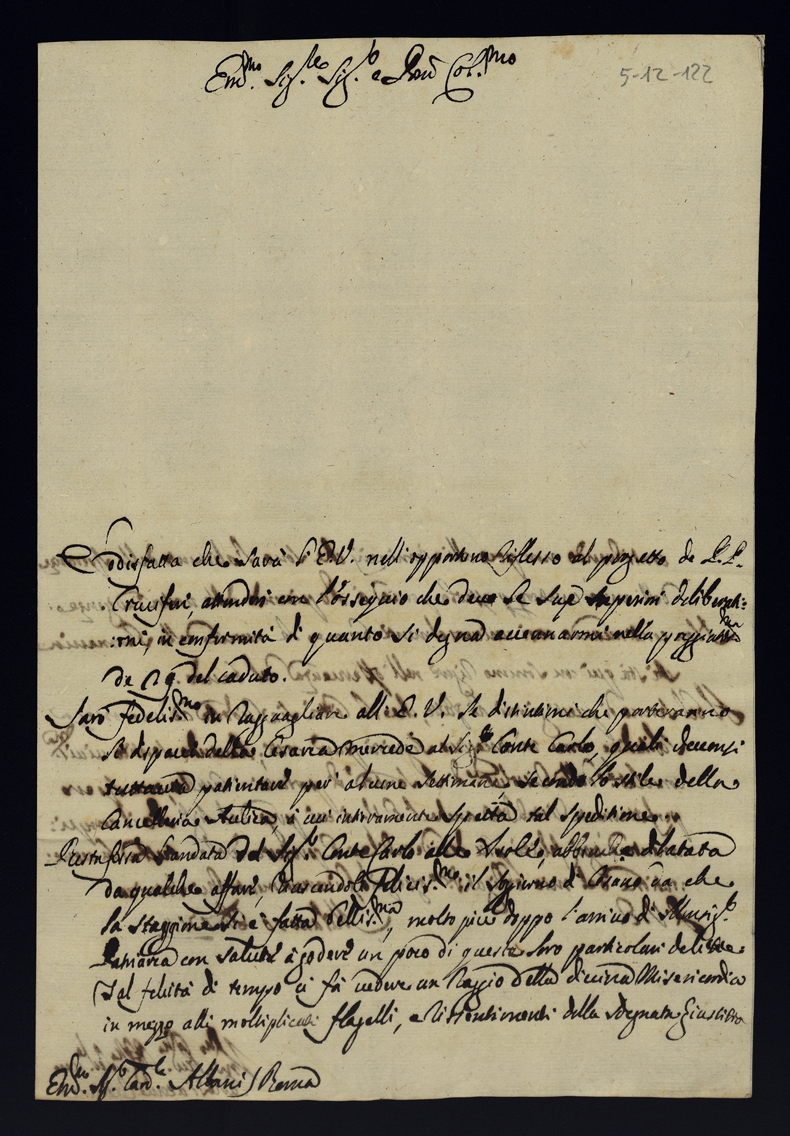 Em̃.mo Sig.re Sig.r e Prõn Col.mo
5-12-122
Sodisfatta che sarà l'E.V. nell'opportuno riflesso al progetto de P.P.
Cruciferi, attenderò con l'ossequio che devo le sue deliberati:
:oni, in conformità di quanto si degnò accennarmi nella
de 29. del caduto.
Sarò fedeliss.mo in ragguagliare all'E.V. le distintioni che porteranno
li dispacci della Cesarea mercede al Sig.r Conte Carlo, quali
tuttavia patientare per alcune settimane secondo lo stile della
Cancelleria Aulica, à cui intieramente spetta tal speditione.
l'andata del Sig.r Conte Carlo alle Isole, abbenche dilatata
da qualche affare, felicis.mo il soggiorno di che
la staggione si è fatta bellis.ma, molto più doppo l'arrivo di Monsig.r
Patriarca con salute à godere un poco di queste loro particolari delitie.
Tal felicità di tempo ci fà vedere un raggio della divina Misericordia
in mezzo alli moltiplicati flagelli, e risentimenti della sdegnata Giustitia
Em̃.mo Sig.r Card.le Albani / Roma